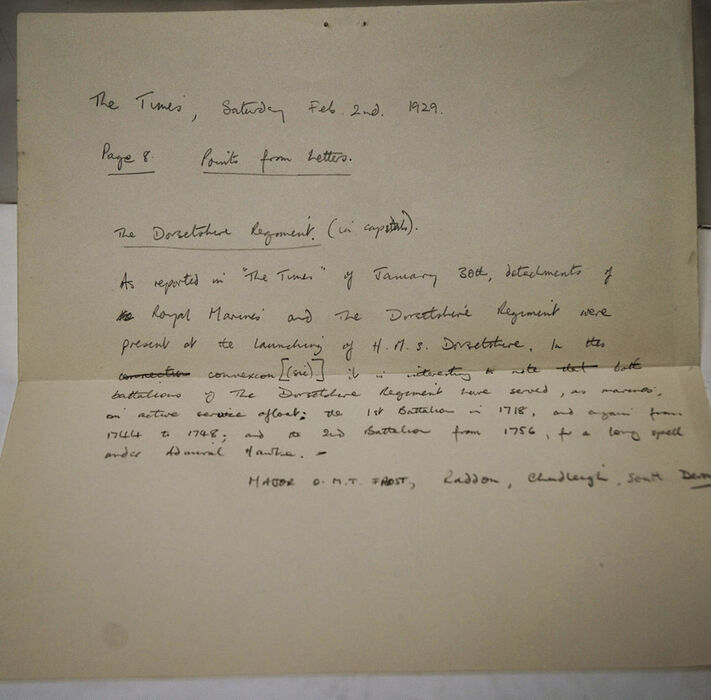 The Times, Saturday Feb. 2nd. 1929.
Page 8. Points from Letters.
The Dorsetshire Regiment. (in capitals).
As reported in "The Times" of January 30th, detachments of
the Royal Marines and The Dorsetshire Regiment were
present at the launching of H.M.S. Dorsetshire. In this
connection connexion [(sic)] it is interesting to note that both
battalions of The Dorsetshire Regiment have served, as marines,
on active service afloat; the 1st Battalion in 1718, and again from
1744 to 1748; and the 2nd Battalion from 1756, for a long spell
under Admiral Hawke. -
MAJOR O.M.T. FROST, Raddon, Chudleigh, South Devon